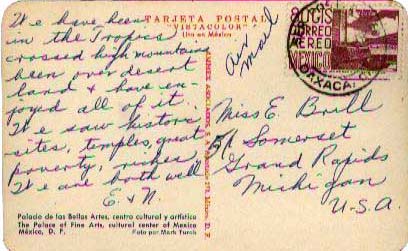 TARJETA POSTAL
"VISTACOLOR"
Lito en México
We have been
in the Tropics
crossed high mountains
been over desert
land & have en-
joyed all of it.
We saw historic
sites, temples, great
poverty, riches.
We are both well
E & N.
Air
mail
80 CTS
CORREO
AEREO
MEXICO
OAXACA
Miss E. Brill
Somerset
Grand Rapids
Michigan
U.S.A.
Palacio de las Bellas Artes, centro cultural y artístico
The Palace of Fine Arts, cultural center of Mexico
México, D. F.
Foto por Mark Turok